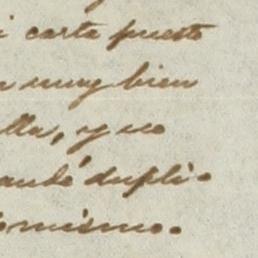 i carta puesto
muy bien
lla, y no
andó dupli-
omismo.